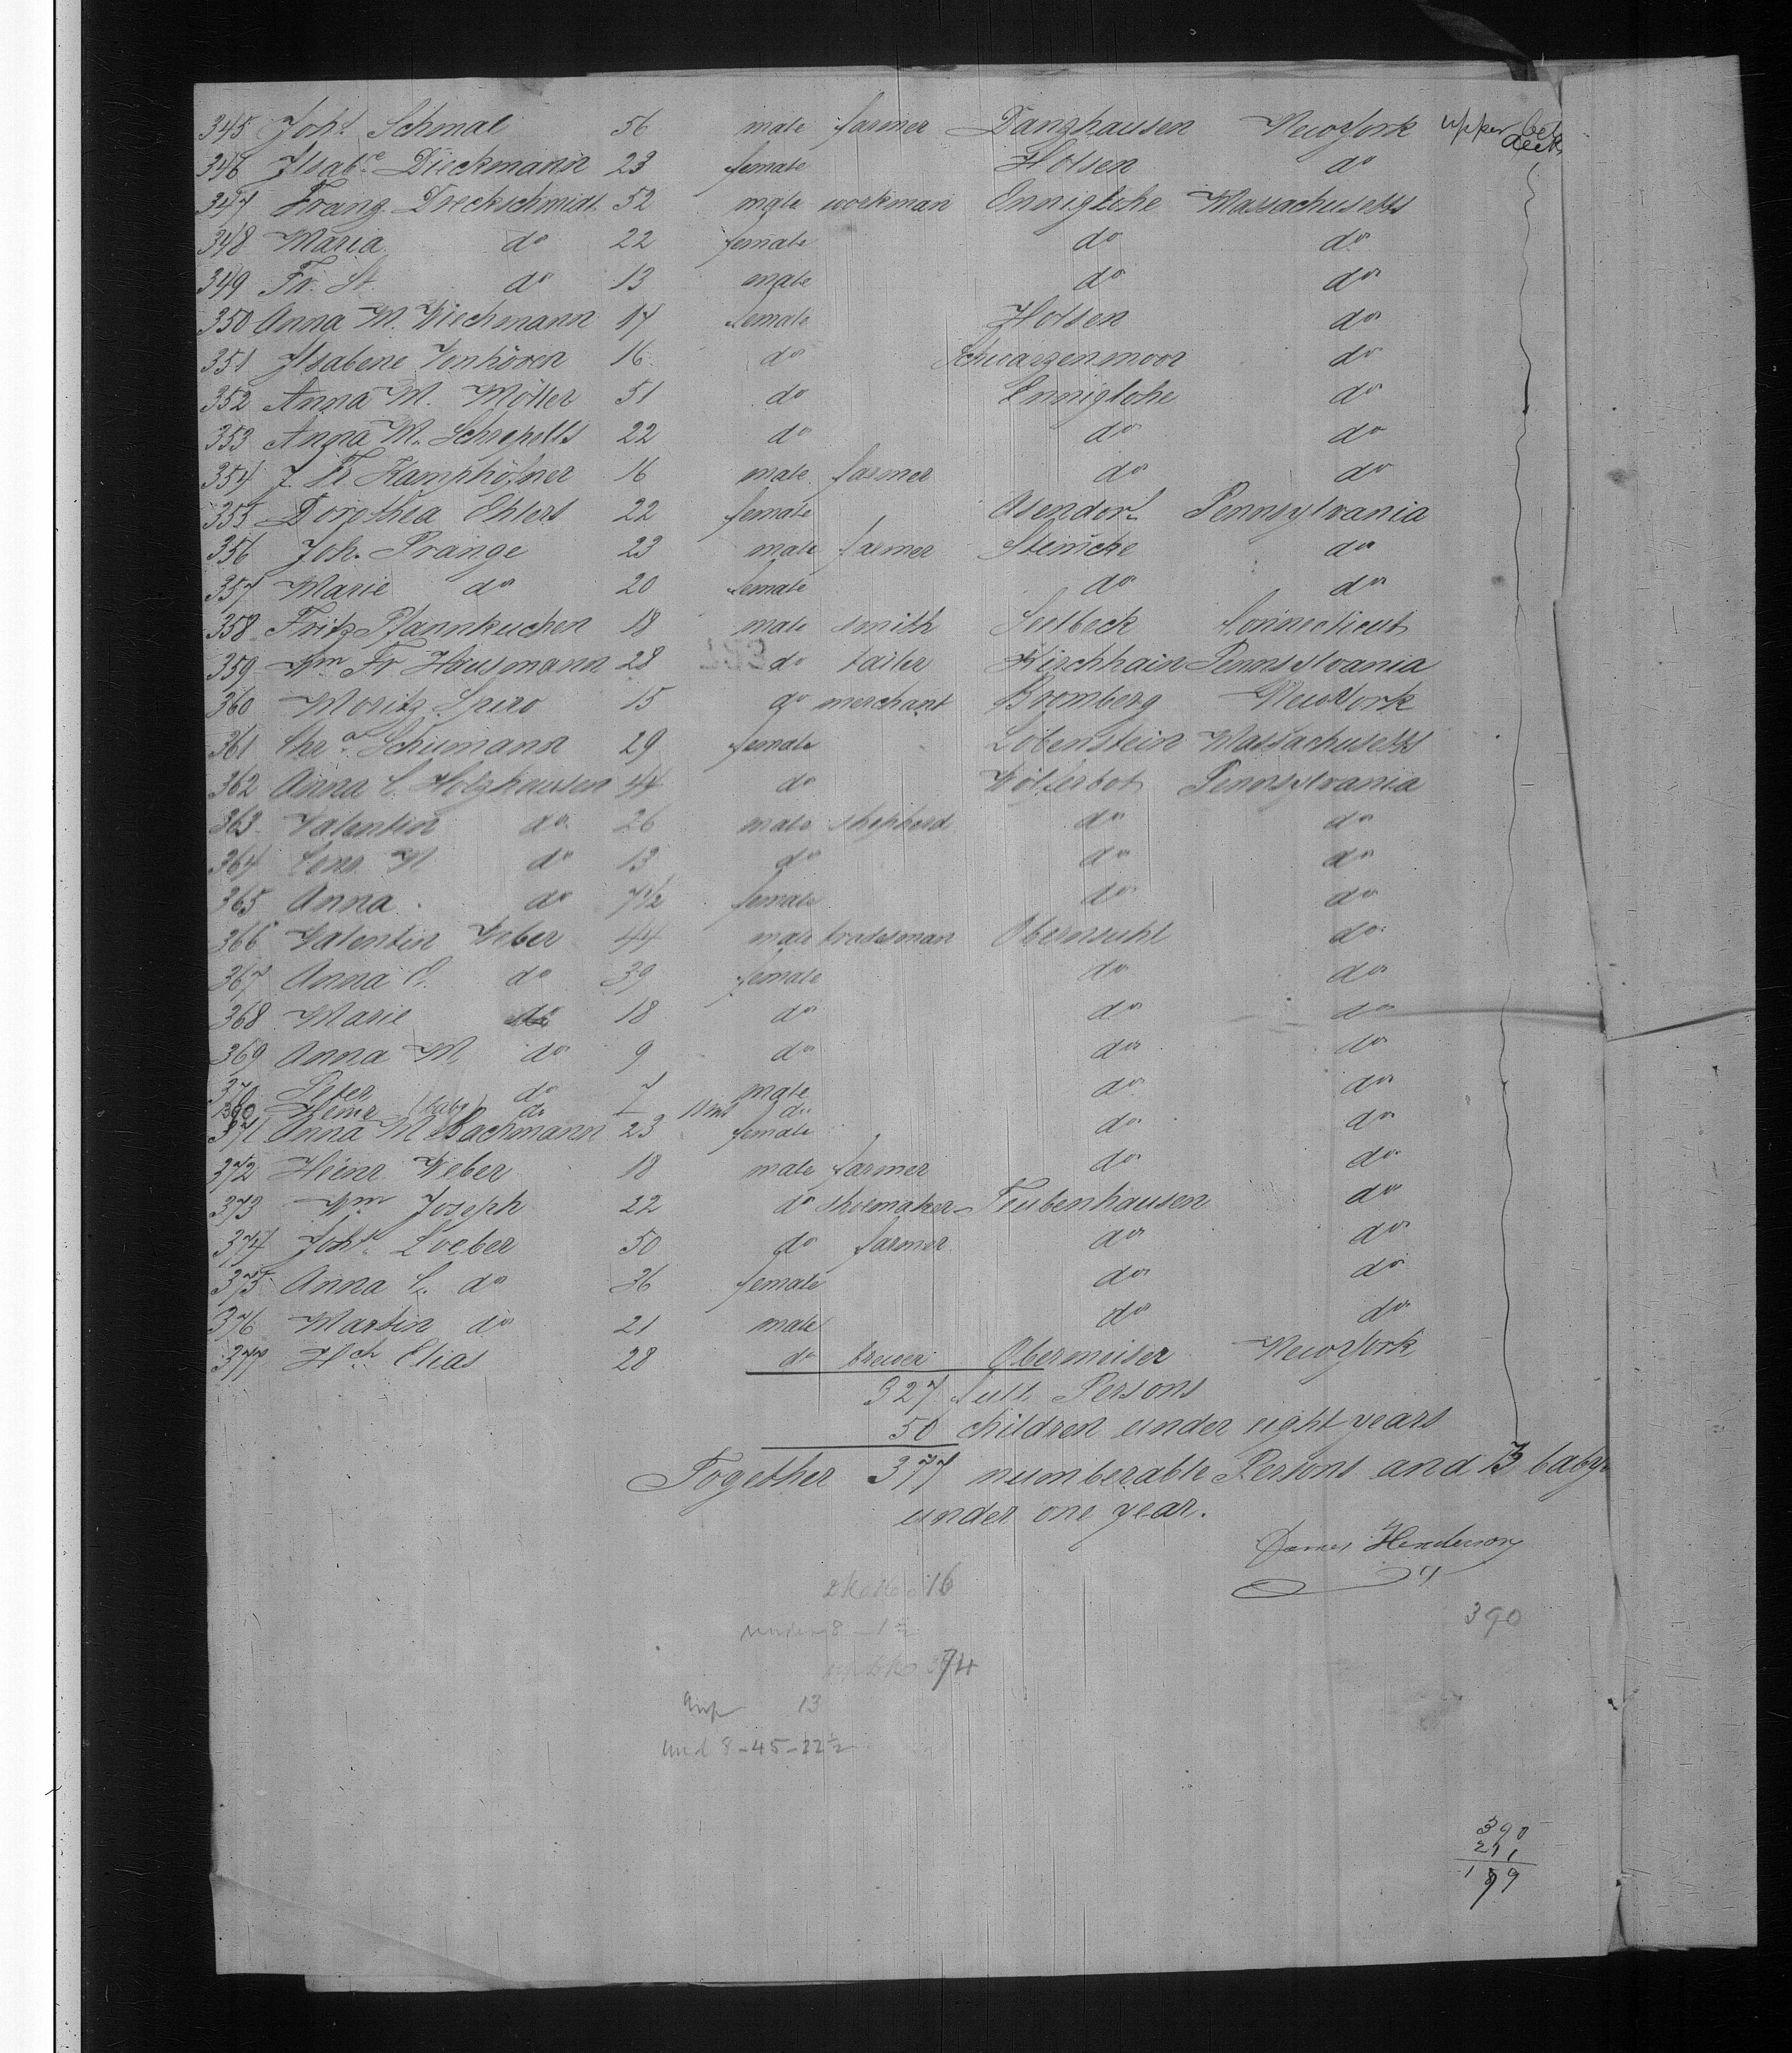 345 Joht Schmal 56 male farmer Danzhausen New York upper bet deck
346 Ilsabe Dieckmann 23 female Holsen do
347 Franz Dreckschmidt 52 male workman Ennigloh Massachusetts
348 Maria do 22 female do do
349 Fr. St. do 13 male do do
350 Anna M. Wiechmann 17 female Holsen do
351 Ilsabene Vonhören 16 do Schwarzenmoor do
352 Anna M. Möller 51 do Enniglohe do
353 Anna M. 22 do do do
354 J. Fr Kamphöfner 16 male farmer do do
355 Dorothea Ehlers 22 female Asendorf Pennsylvania
356 Joh. Prange 23 male farmer Steincke do
357 Marie do 20 female do do
358 Fritz Pfannkuchen 18 male smith Sulbeck Connecticut
359 Wm Fr Hausmann 28 do tailer Kirchhain Pennsylvania
360 Moritz Spiro 15 do merchant Bromberg New York
361 Chr.e Schumann 29 female Lobenstein Massachusetts
362 Anna C. Holzhausen 44 do Wölferbot Pennsylvania
363 Valentin do 26 male shepherd do do
364 do 13 do do do
365 Anna do 7½ female do do
366 Valentin Weber 44 male tradesman Obernsuhl do
367 Anna E. do 39 female do do
368 Marie do 18 do do do
369 Anna M do 9 do do do
370 Peter do 7 male do do
390 Heinr (baby) do do
371 Anna M Bachmann 23 female do do
372 Heinr Weber 18 male farmer do do
373 Wm Joseph 22 do shoemaker Trubenhausen do
374 Joht Loeber 50 do farmer do do
375 Anna C. do 36 female do do
376 Martin do 21 male do do
377 Hch Elias 28 do brewer Obermeiser New York
327 full Persons
50 children under eight years
Together 377 numberable Persons and 13 babys
under one year.
James Henderson
16
390
under 8 - 1½
74
13
und 8 - 45 - 22½
390
211
179